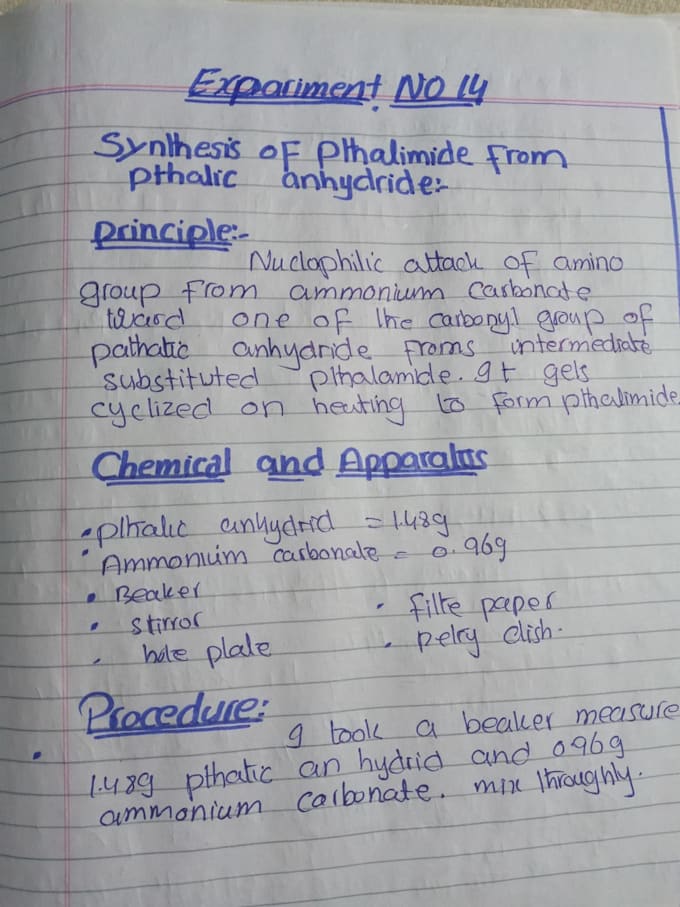 Expariment NO 14
Synthesis of Plthalimide from
pthalic anhydride:-
principle:-
Nuclophilic attack of amino
group from ammonium carbonate
toward one of the carbonyl group of
pathatic anhydride froms intermediate
substituted plthalamide. It gets
cyclized on heating to form pthalimide.
Chemical and Apparatus
• plthalic anhydrid = 1.48g
• Ammonium carbonate = 0.96g
• Beaker
• stirror
• hote plate
• filte paper
• petry dish.
Procedure:
• I took a beaker measure
1.48g pthatic an hydrid and 0.96g
ammonium carbonate. mix throughly.